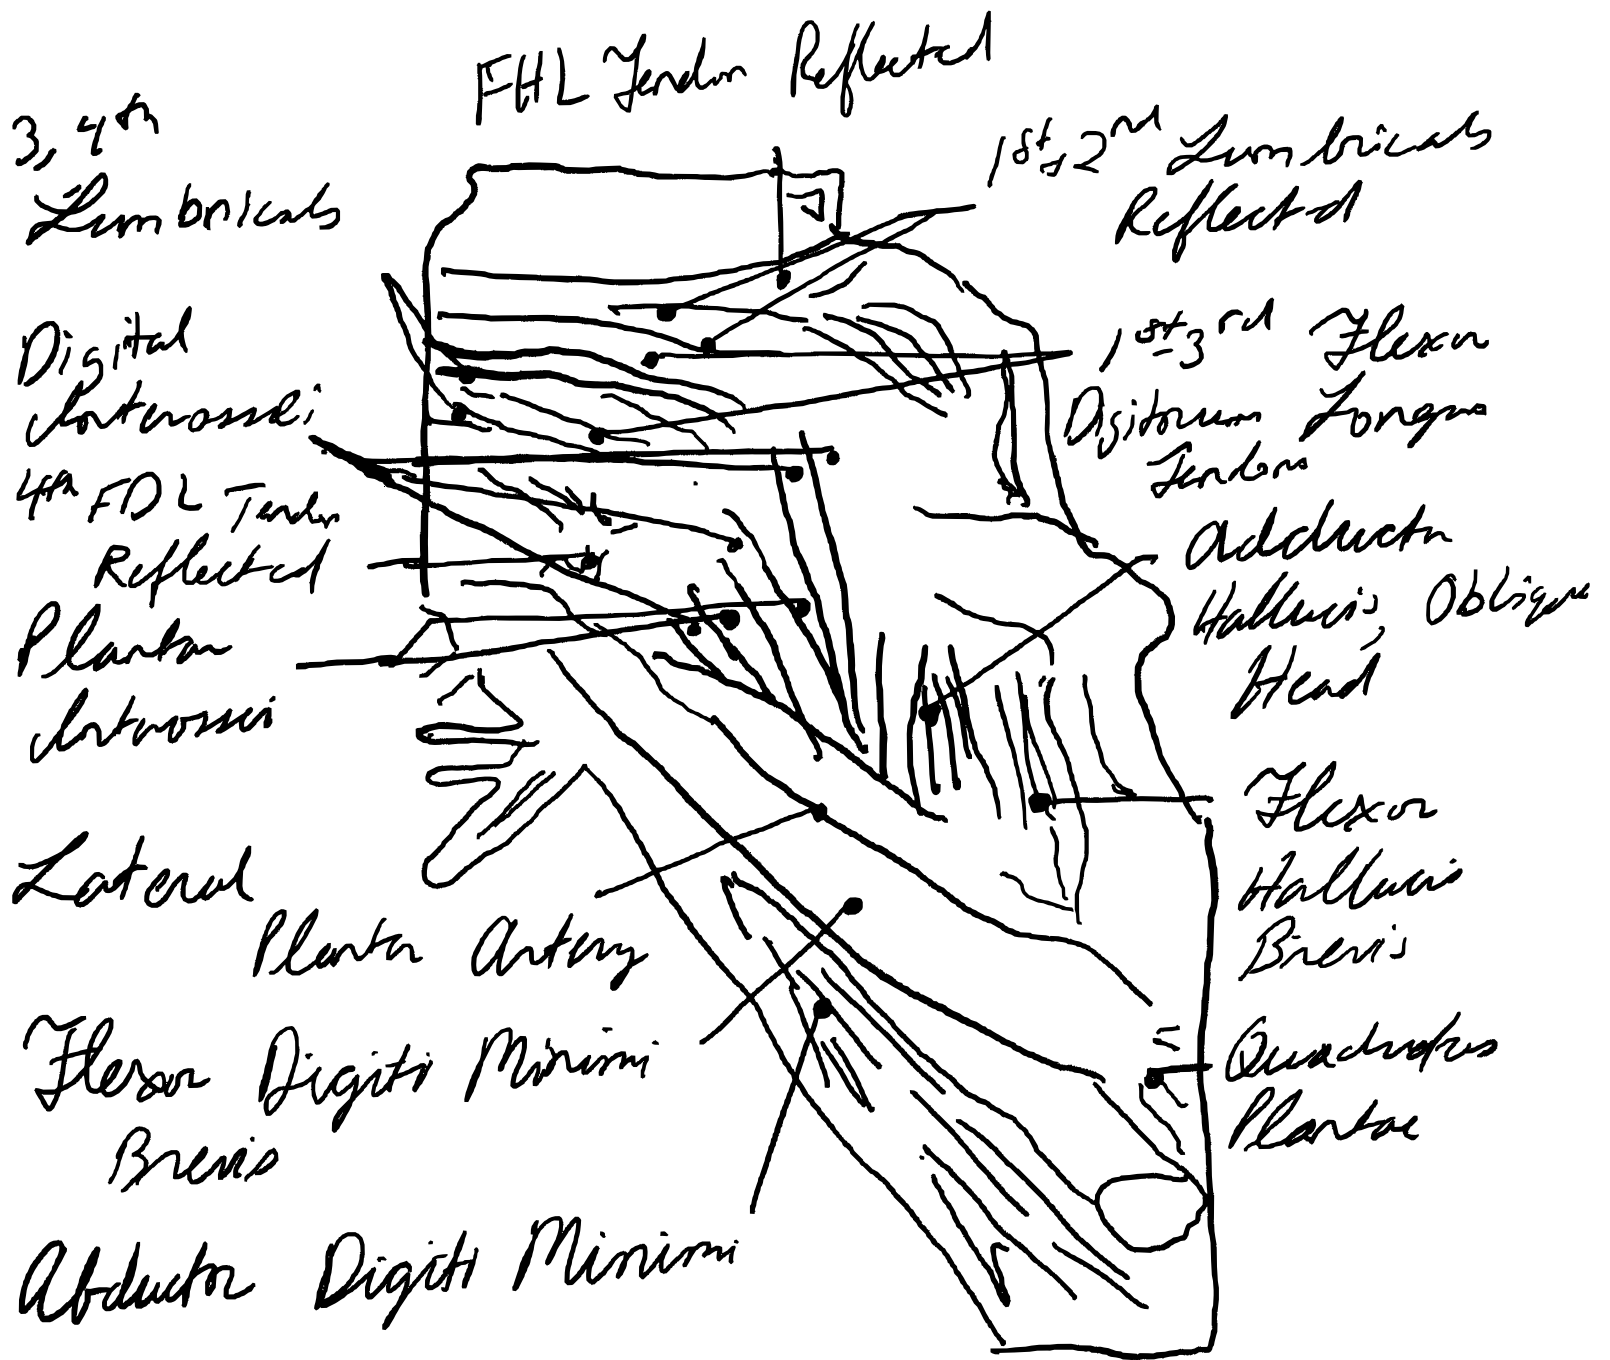 FHL Tendon Reflected
3, 4th
Lumbricals
1st-2nd Lumbricals
Reflected
Digital
Interossei
1st-3rd Flexor
Digitorum Longus
Tendons
4th FDL Tendon
Reflected
Adductor
Hallucis, Oblique
Head
Plantar
Interossei
Flexor
Hallucis
Brevis
Lateral
Plantar Artery
Flexor Digiti Minimi
Brevis
Quadratus
Plantae
Abductor Digiti Minimi